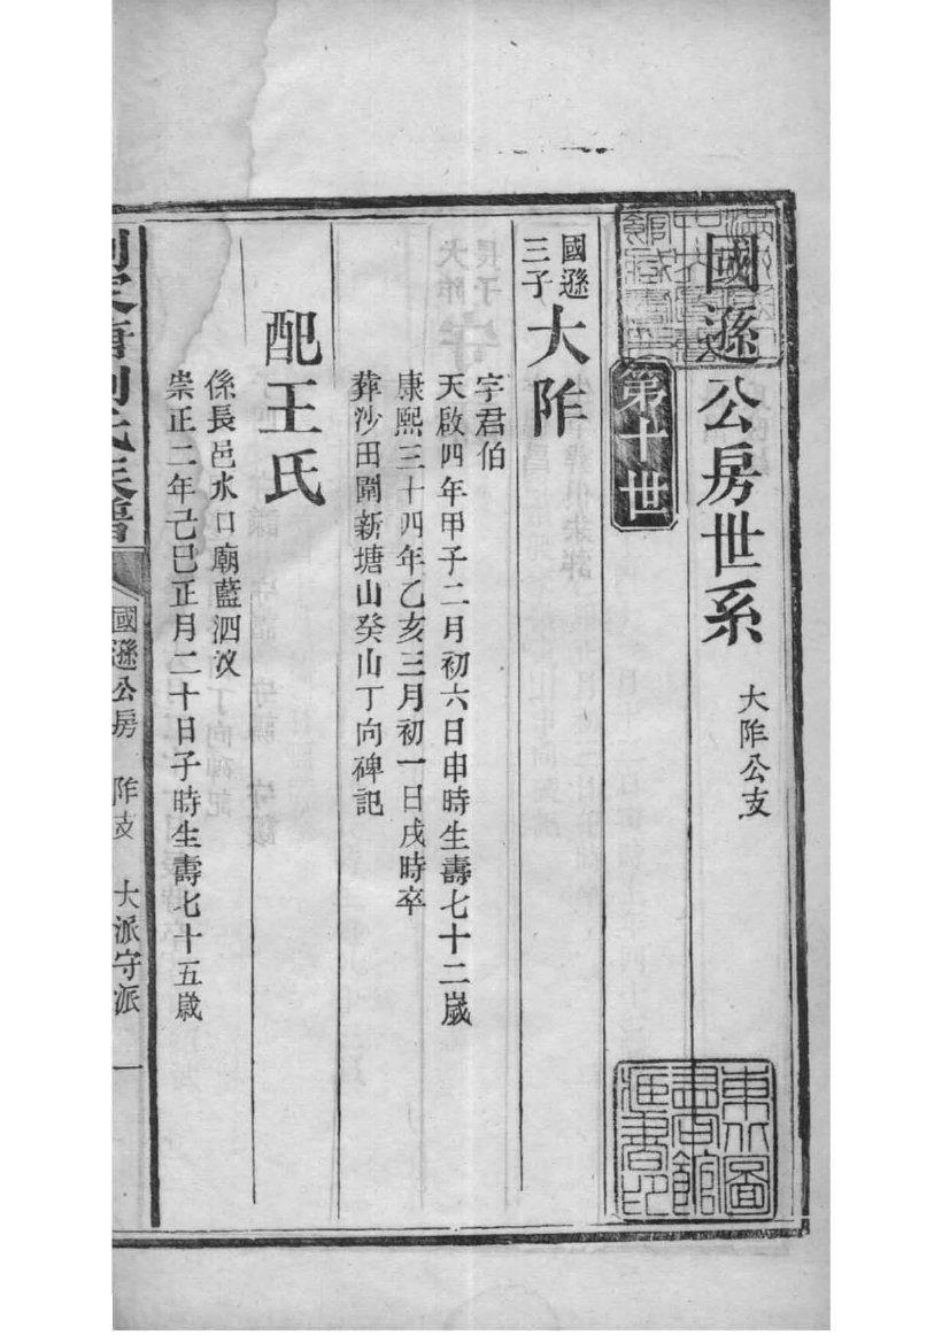 國遜公房世系 大阼公支
第十世
國遜三子 大阼
字君伯
天啟四年甲子二月初六日申時生壽七十二歲
康熙三十四年乙亥三月初一日戌時卒
葬沙田圍新塘山癸山丁向碑記
配王氏
係長邑水口廟藍泗汶
崇正二年己巳正月二十日子時生壽七十五歲
劉氏族譜
國遜公房 阼支 大派守派 一
東北圖書館藏書印